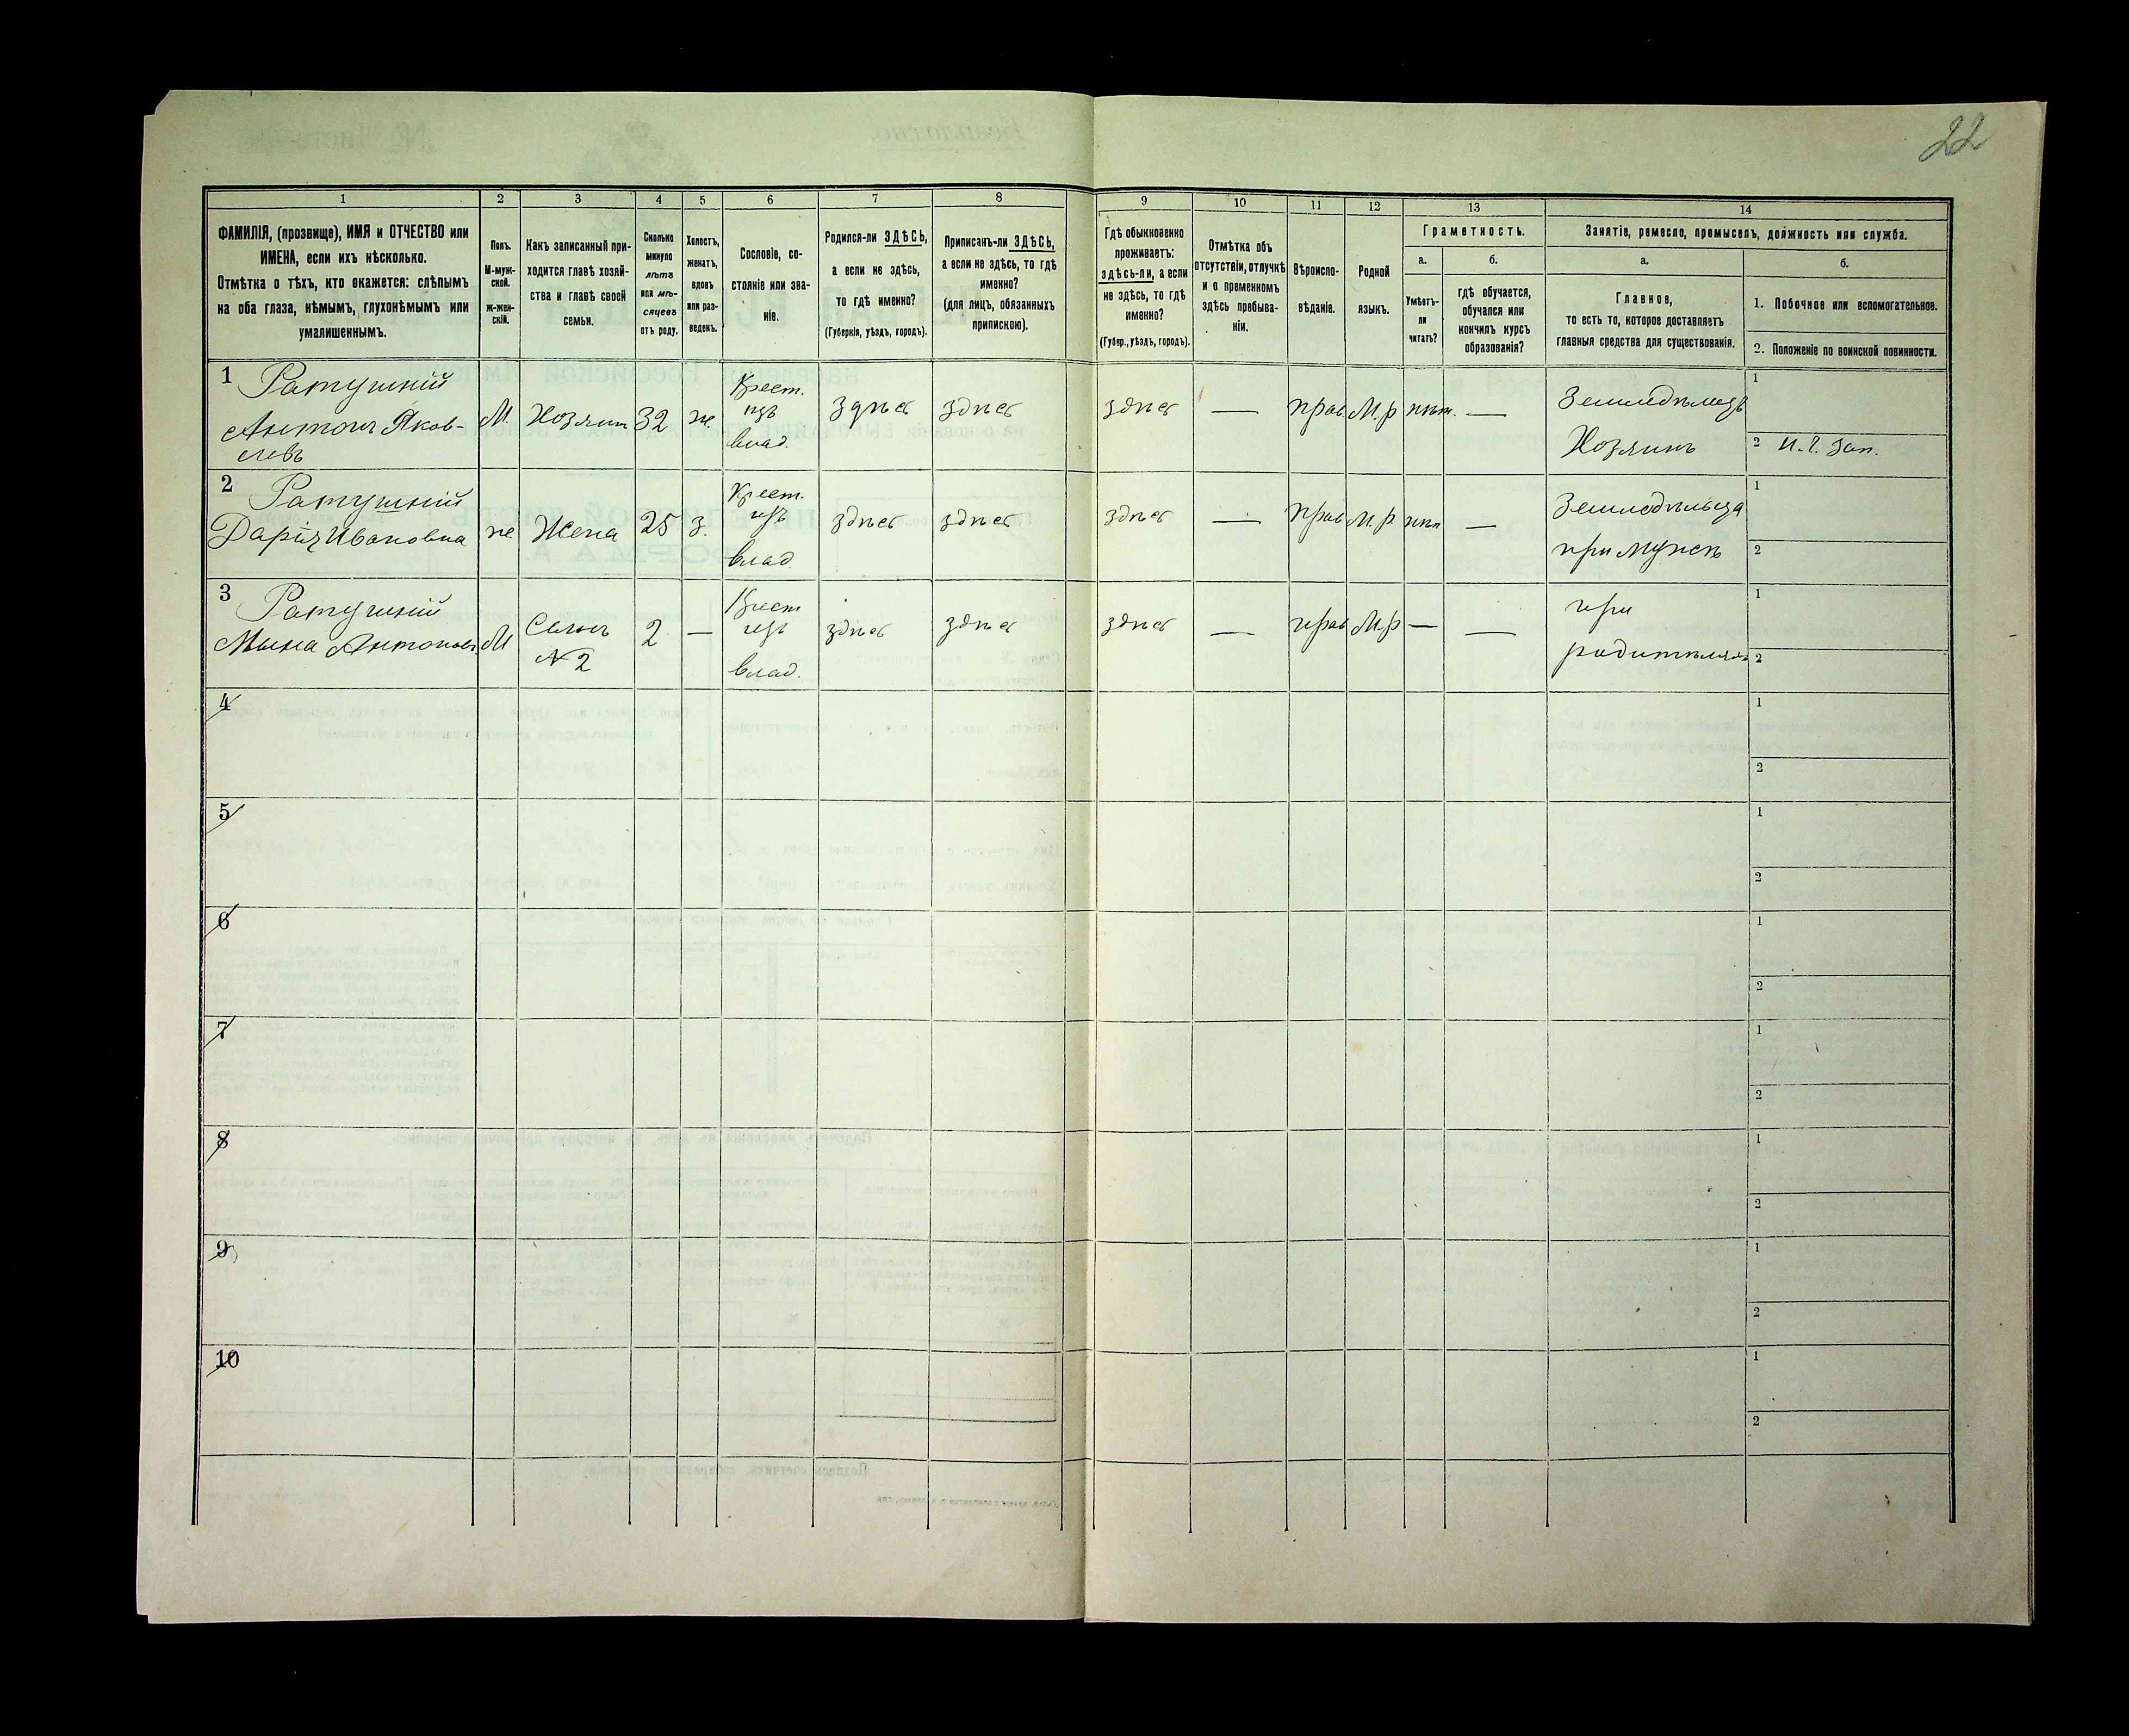 22
1 2 3 4 5 6 7 8 9 10 11 12 13 14
ФАМИЛІЯ, (прозвище), ИМЯ и ОТЧЕСТВО или
ИМЕНА, если ихъ нѣсколько.
Отмѣтка о тѣхъ, кто окажется: слѣпымъ
на оба глаза, нѣмымъ, глухонѣмымъ или
умалишеннымъ.
Полъ.
М-муж-
ской.
Ж-жен-
скій.
Какъ записанный при-
ходится главѣ хозяй-
ства и главѣ своей
семьи.
Сколько
минуло
лѣтъ
или мѣ-
сяцевъ
отъ роду.
Холостъ,
женатъ,
вдовъ
или раз-
веденъ.
Сословіе, со-
стояніе или зва-
ніе.
Родился-ли ЗДѢСЬ,
а если не здѣсь,
то гдѣ именно?
(Губернія, уѣздъ, городъ).
Приписанъ-ли ЗДѢСЬ,
а если не здѣсь, то гдѣ
именно?
(для лицъ, обязанныхъ
припискою).
Гдѣ обыкновенно
проживаетъ:
здѣсь-ли, а если
не здѣсь, то гдѣ
именно?
(Губер., уѣздъ, городъ).
Отмѣтка объ
отсутствіи, отлучкѣ
и о временномъ
здѣсь пребыва-
ніи.
Вѣроиспо-
вѣданіе.
Родной
языкъ.
Грамотность.
а.
Умѣетъ-
ли
читать?
б.
гдѣ обучается,
обучался или
кончилъ курсъ
образованія?
Занятіе, ремесло, промыселъ, должность или служба.
а.
Главное,
то есть то, которое доставляетъ
главныя средства для существованія.
б.
1. Побочное или вспомогательное.
2. Положеніе по воинской повинности.
1
Ратушній
Антонъ Яков-
левъ
М.
Хозяин
32
же.
Крест.
изъ
влад.
здѣсь
здѣсь
здѣсь
—
прав
М.р
нѣт.
—
Земледѣлецъ
Хозяинъ
1
2 И.2. Зап.
2
Ратушній
Дарія Ивановна
же
Жена
25
з.
Крест.
изъ
влад.
здѣсь
здѣсь
здѣсь
—
прав
М.р
нѣт
—
Земледѣльца
при мужѣ
1
2
3
Ратушній
Мына Антоновъ
М
Сынъ
N 2
2
—
Крест
изъ
влад.
здѣсь
здѣсь
здѣсь
—
прав
М.р
—
—
при
родителях
1
2
4
1
2
5
1
2
6
1
2
7
1
2
8
1
2
9
1
2
10
1
2